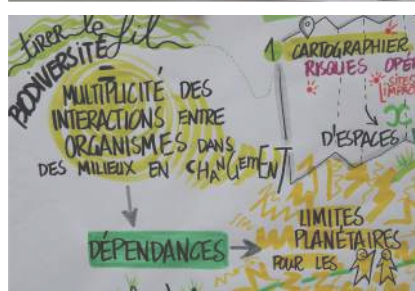 tirer le fil
BIODIVERSITÉ
=
MULTIPLICITÉ DES
INTERACTIONS ENTRE
ORGANISMES DANS
DES MILIEUX EN CHANGEMENT
DÉPENDANCES
1 CARTOGRAPHIER
RISQUES
SITES
D'ESPACES
LIMITES
PLANÉTAIRES
POUR LES